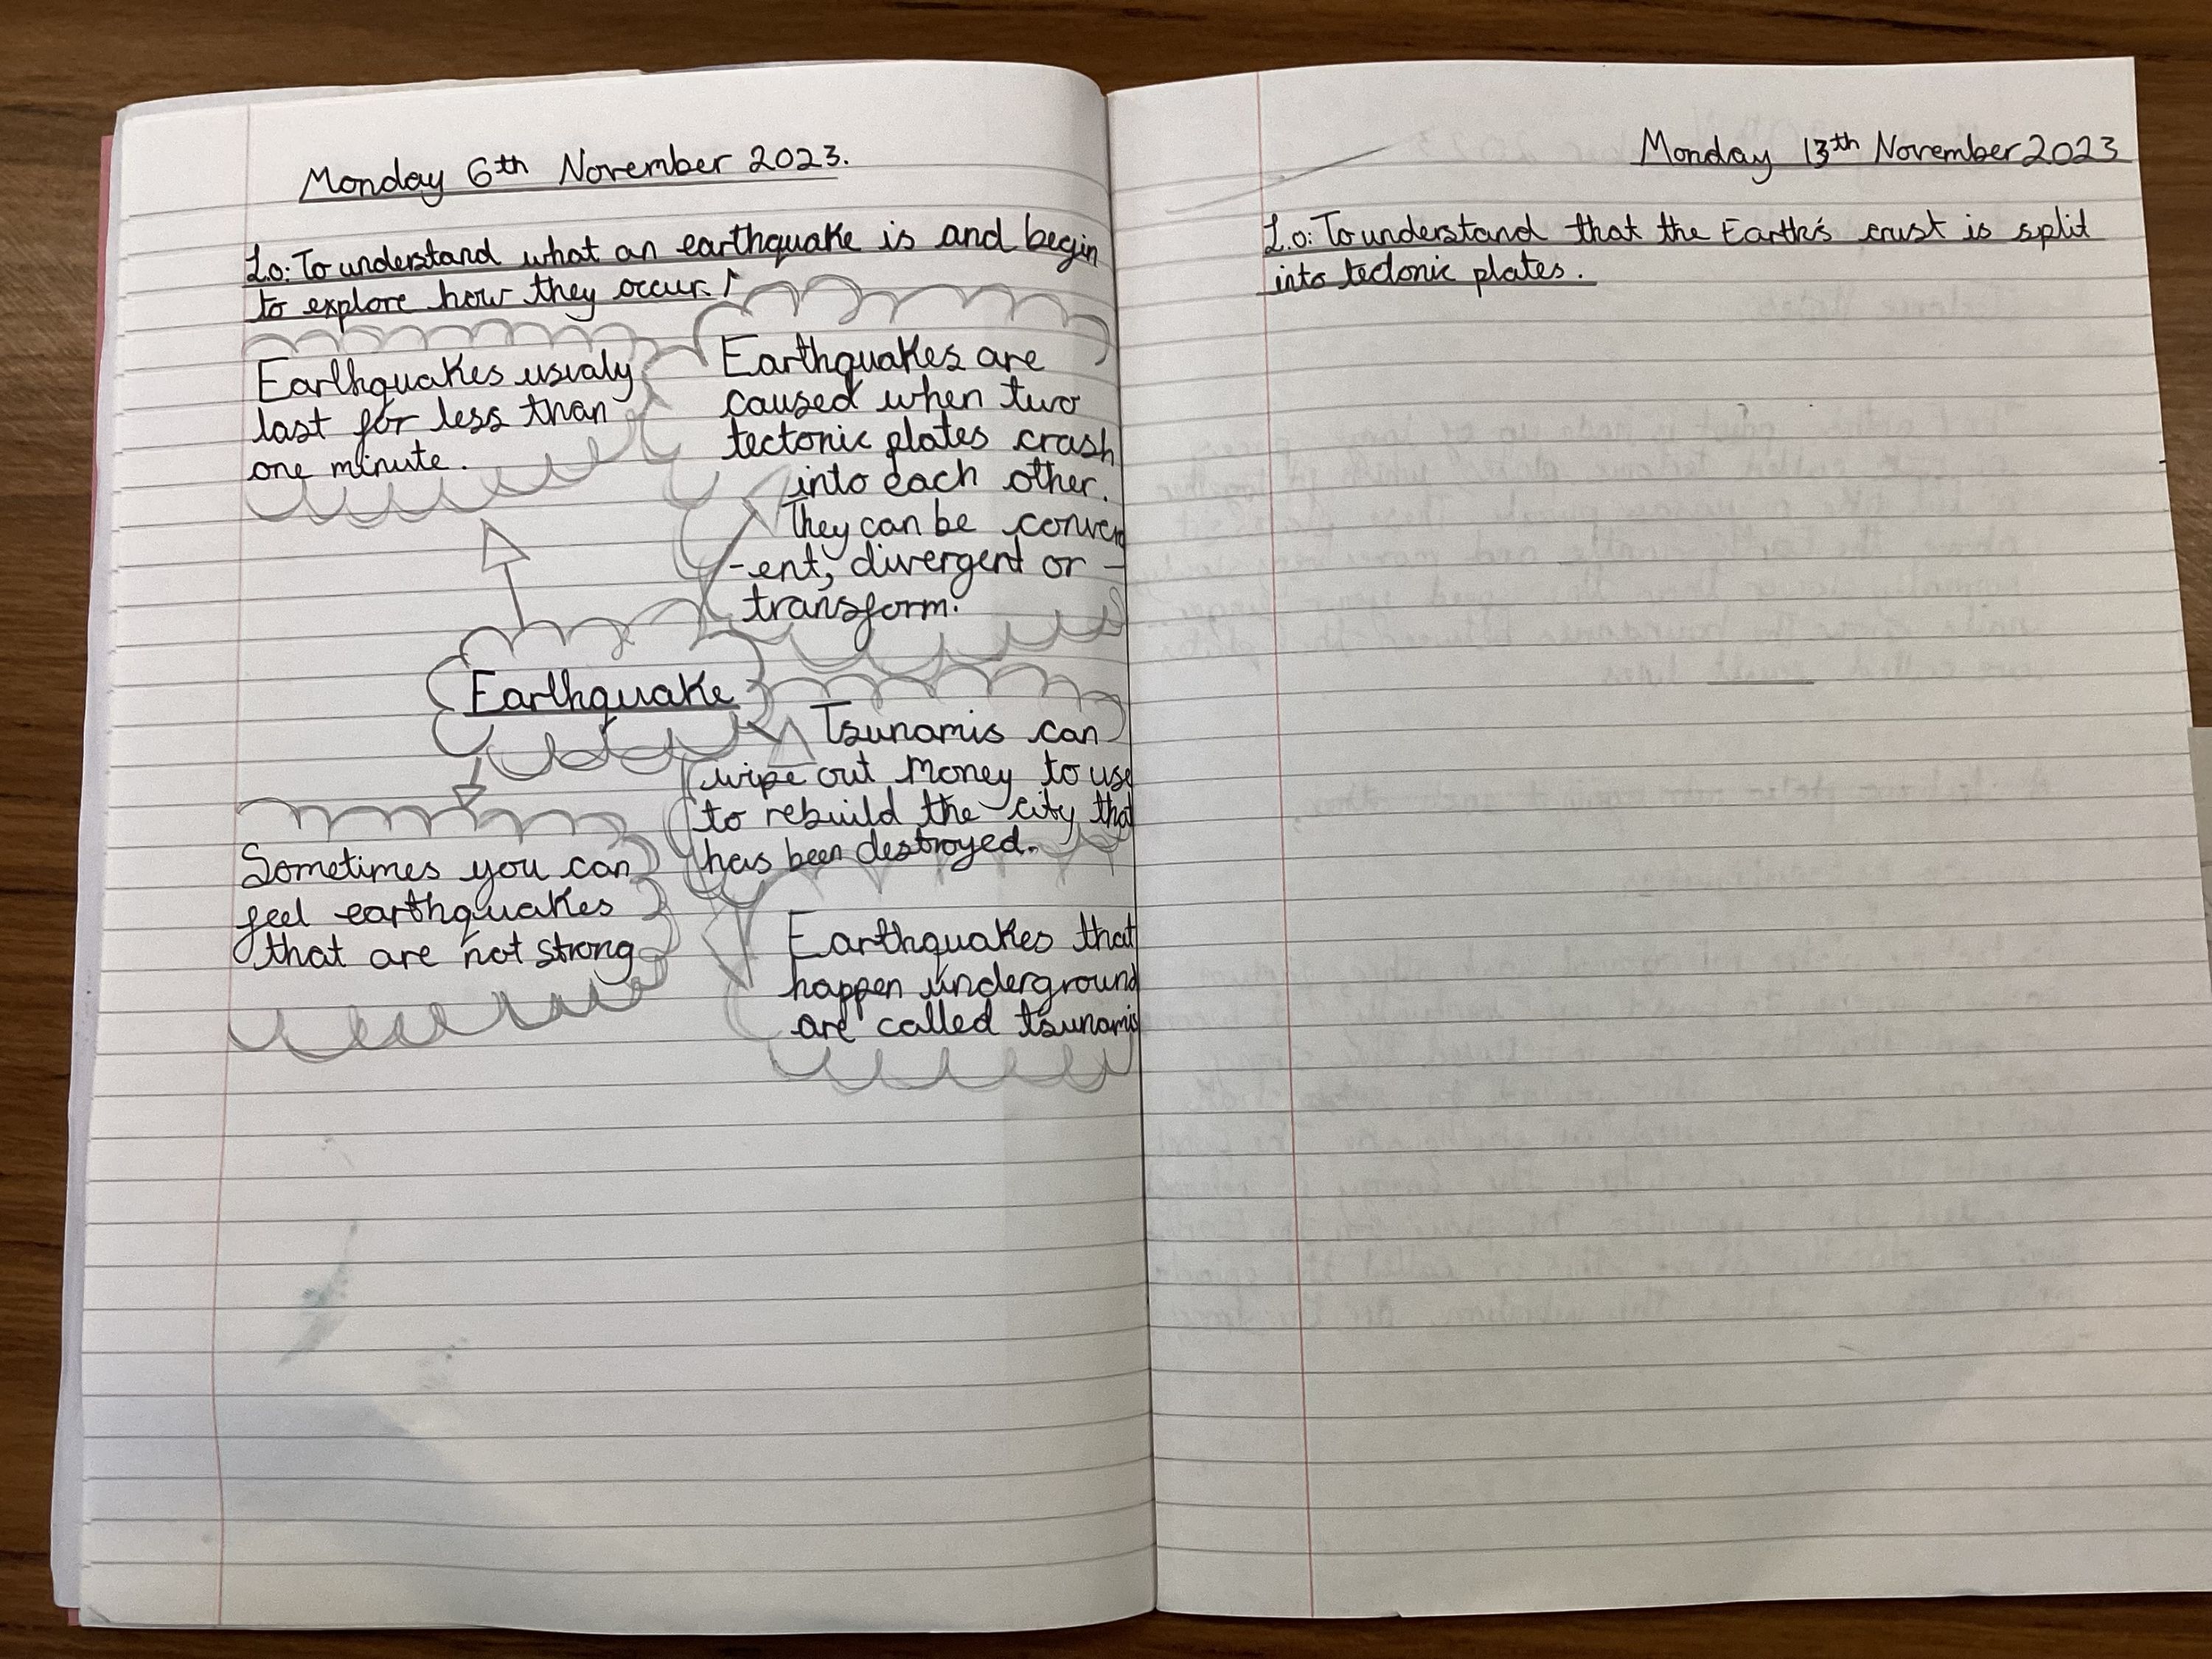 Monday 6th November 2023.
L.o: To understand what an earthquake is and begin
to explore how they occur.
Earthquakes usualy
last for less than
one minute.
Earthquakes are
caused when two
tectonic plates crash
into each other.
They can be converg
-ent, divergent or -
transform.
Earthquake
Tsunamis can
wipe out money to use
to rebuild the city that
has been destroyed.
Sometimes you can
feel earthquakes
that are not strong
Earthquakes that
happen underground
are called tsunamis
Monday 13th November 2023
L.o: To understand that the Earth's crust is split
into tectonic plates.